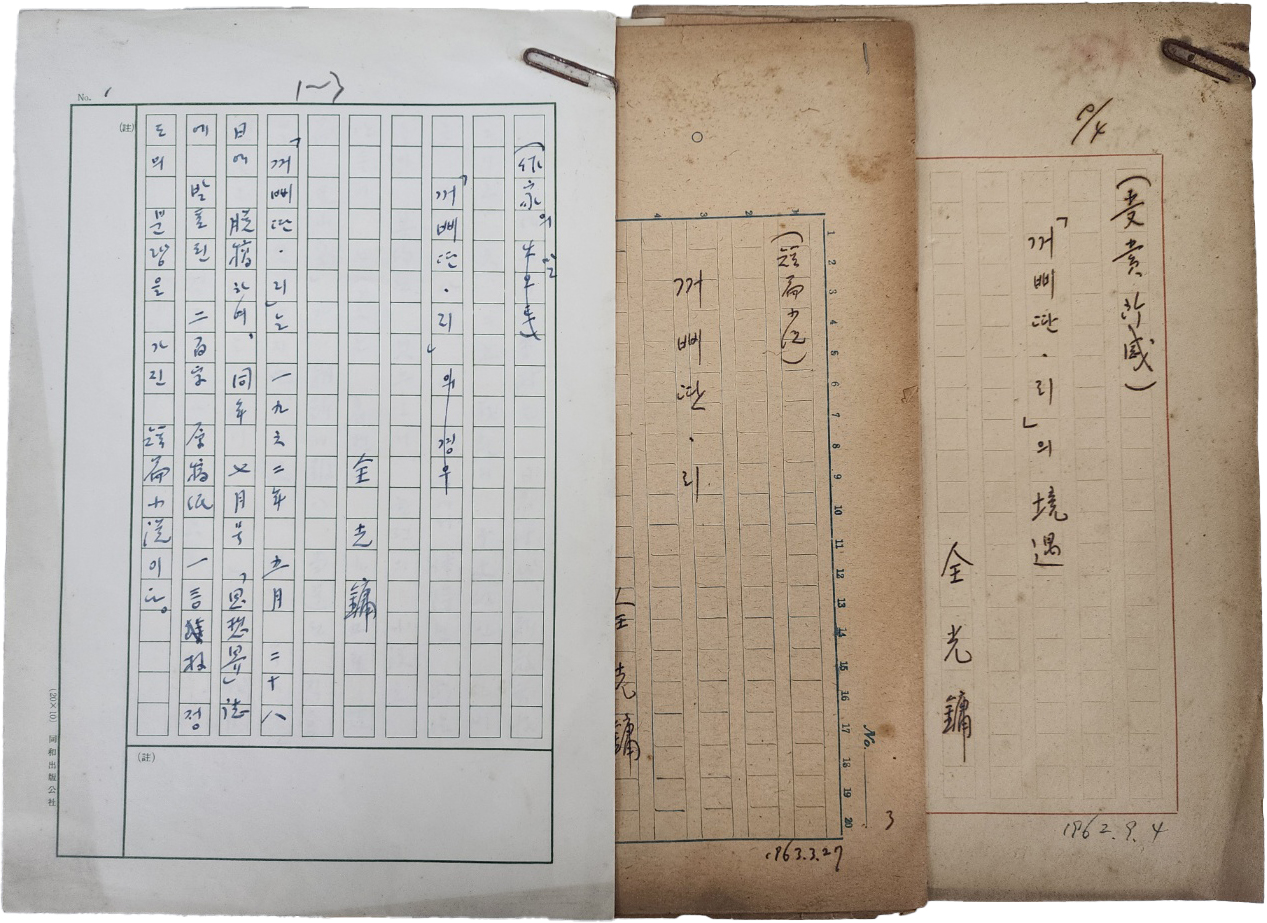 No. 1
1~3
(作家의
「꺼삐딴·리」의 경우
全光鏞
「꺼삐딴·리」는 一九六二年 五月 二十八
日에 脫稿하여, 同年 七月号 「思想界」誌
에 발표된 二百字 原稿紙 一百 枚 정
도의 분량을 가진 短篇小説이다。
(註)
(註)
(20×10) 同和出版公社
1 2 3 4
1 2 3 4 5 6 7 8 9 10 11 12 13 14 15 16 17 18 19 20
(短篇小説)
꺼삐딴·리
全光鏞
No.
3
1963.3.27
9/4
(受賞所感)
「꺼삐딴·리」의 境遇
全光鏞
1962.9.4